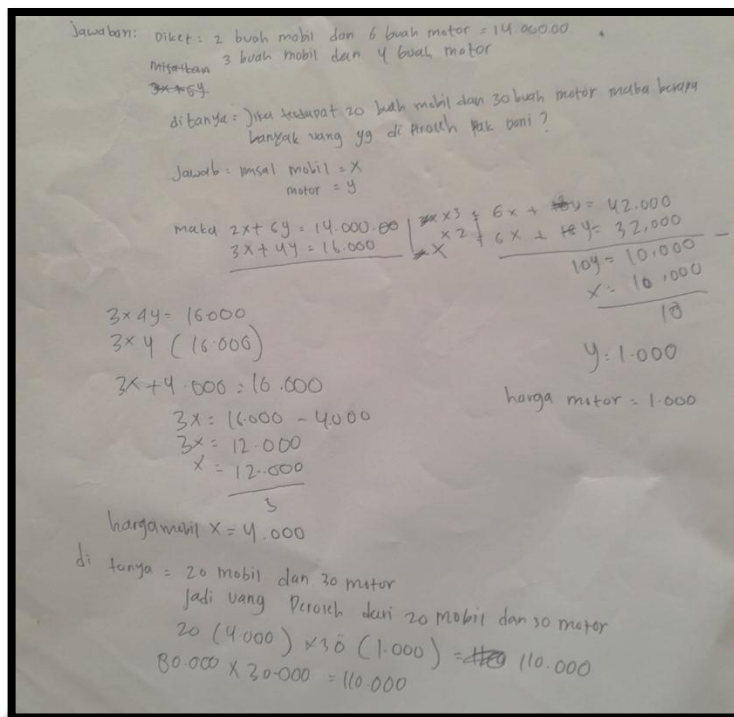 Jawaban: Diket: 2 buah mobil dan 6 buah motor = 14.000.00
misalkan 3 buah mobil dan 4 buah motor
ditanya = Jika terdapat 20 buah mobil dan 30 buah motor maka berapa
banyak uang yg di Proleh Pak
Jawab = misal mobil = x
motor = y
maka 2x + 6y = 14.000.00 | x3 | 6x + 18y = 42.000
3x + 4y = 16.000 | x2 | 6x + 8y = 32,000 -
10y = 10,000
x = 10,000
10
y = 1.000
harga motor = 1.000
3x 4y = 16.000
3x 4 (16.000)
3x + 4.000 = 16.000
3x = 16.000 - 4.000
3x = 12.000
x = 12.000
3
harga mobil x = 4.000
di tanya = 20 mobil dan 30 motor
Jadi uang Peroleh dari 20 mobil dan 30 motor
20 (4.000) x 30 (1.000) = 110.000
80.000 x 30.000 = 110.000